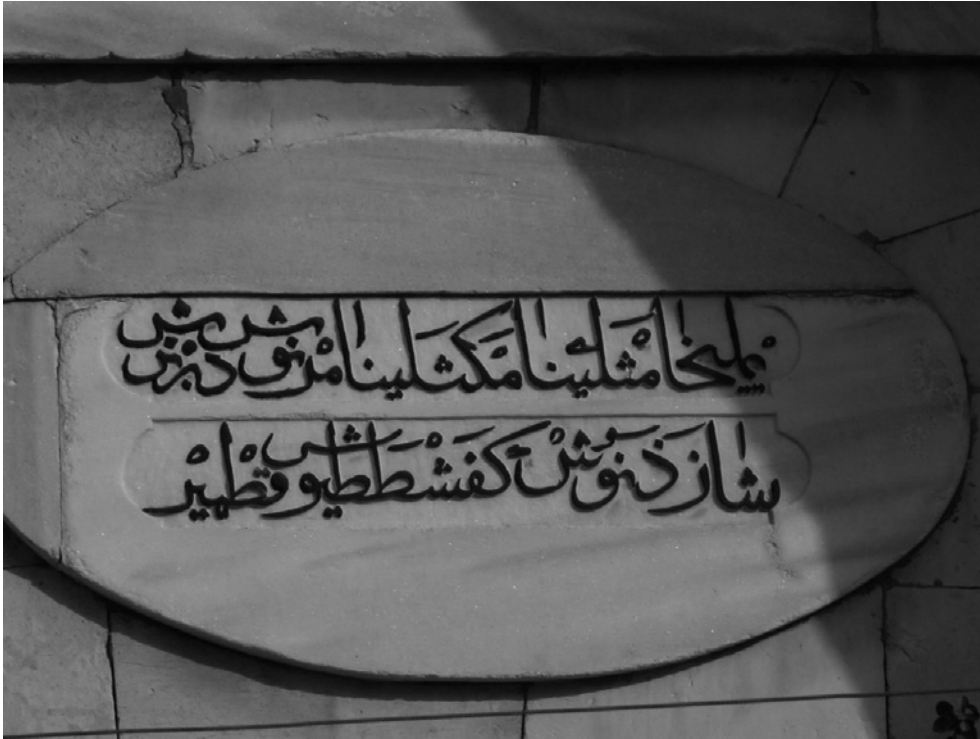 يمليخا مثلينا مكثلينا مرنوش دبرنوش
شازنوش كفشططيوش قطمير